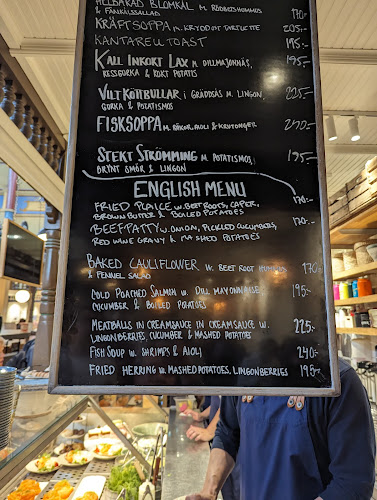 HELBAKAD BLOMKÅL M. RÖDBETSHUMMUS
& FÄNKÅLSSALLAD 170-
KRÄFTSOPPA M. KRYDDIG TARTLETTE 205,-
KANTARELLTOAST 195:-
KALL INKOKT LAX M DILLMAJONNÄS, 195,-
PRESSGURKA & KOKT POTATIS
VILTKÖTTBULLAR I GRÄDDSÅS M. LINGON, 225,-
GURKA & POTATISMOS
FISKSOPPA M. RÄKOR, AIOLI & KRUTONGER 240,-
STEKT STRÖMMING M POTATISMOS, 195,-
BRYNT SMÖR & LINGON
ENGLISH MENU
FRIED PLAICE W. BEETROOTS, CAPER, 170:-
BROWN BUTTER & BOILED POTATOES
BEEFPATTY W. ONION, PICKLED CUCUMBERS, 170:-
RED WINE GRAVY & MASHED POTATOES
BAKED CAULIFLOWER W. BEET ROOT HUMMUS 170
& FENNEL SALAD
COLD POACHED SALMON W. DILL MAYONNAISE, 195:-
CUCUMBER & BOILED POTATOES
MEATBALLS IN CREAMSAUCE IN CREAMSAUCE W. 225:-
LINGONBERRIES, CUCUMBER & MASHED POTATOES
FISH SOUP W. SHRIMPS & AIOLI 240:-
FRIED HERRING W. MASHED POTATOES, LINGONBERRIES 195:-